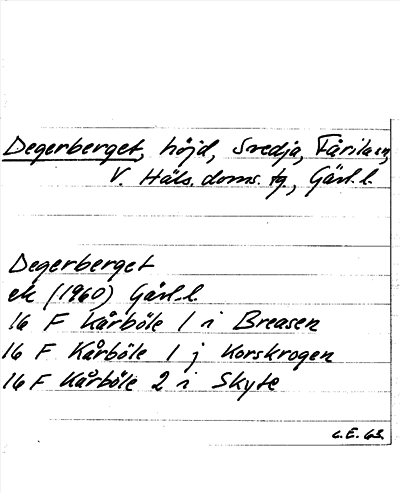 Degerberget, höjd, Svedja, Färila sn,
V. Häls. doms. tg., Gävl. l.
Degerberget
ek (1960) Gävl. l.
16 F Kårböle 1 i Breasen
16 F Kårböle 1 j Korskrogen
16 F Kårböle 2 i Skyte
C.E. 63.